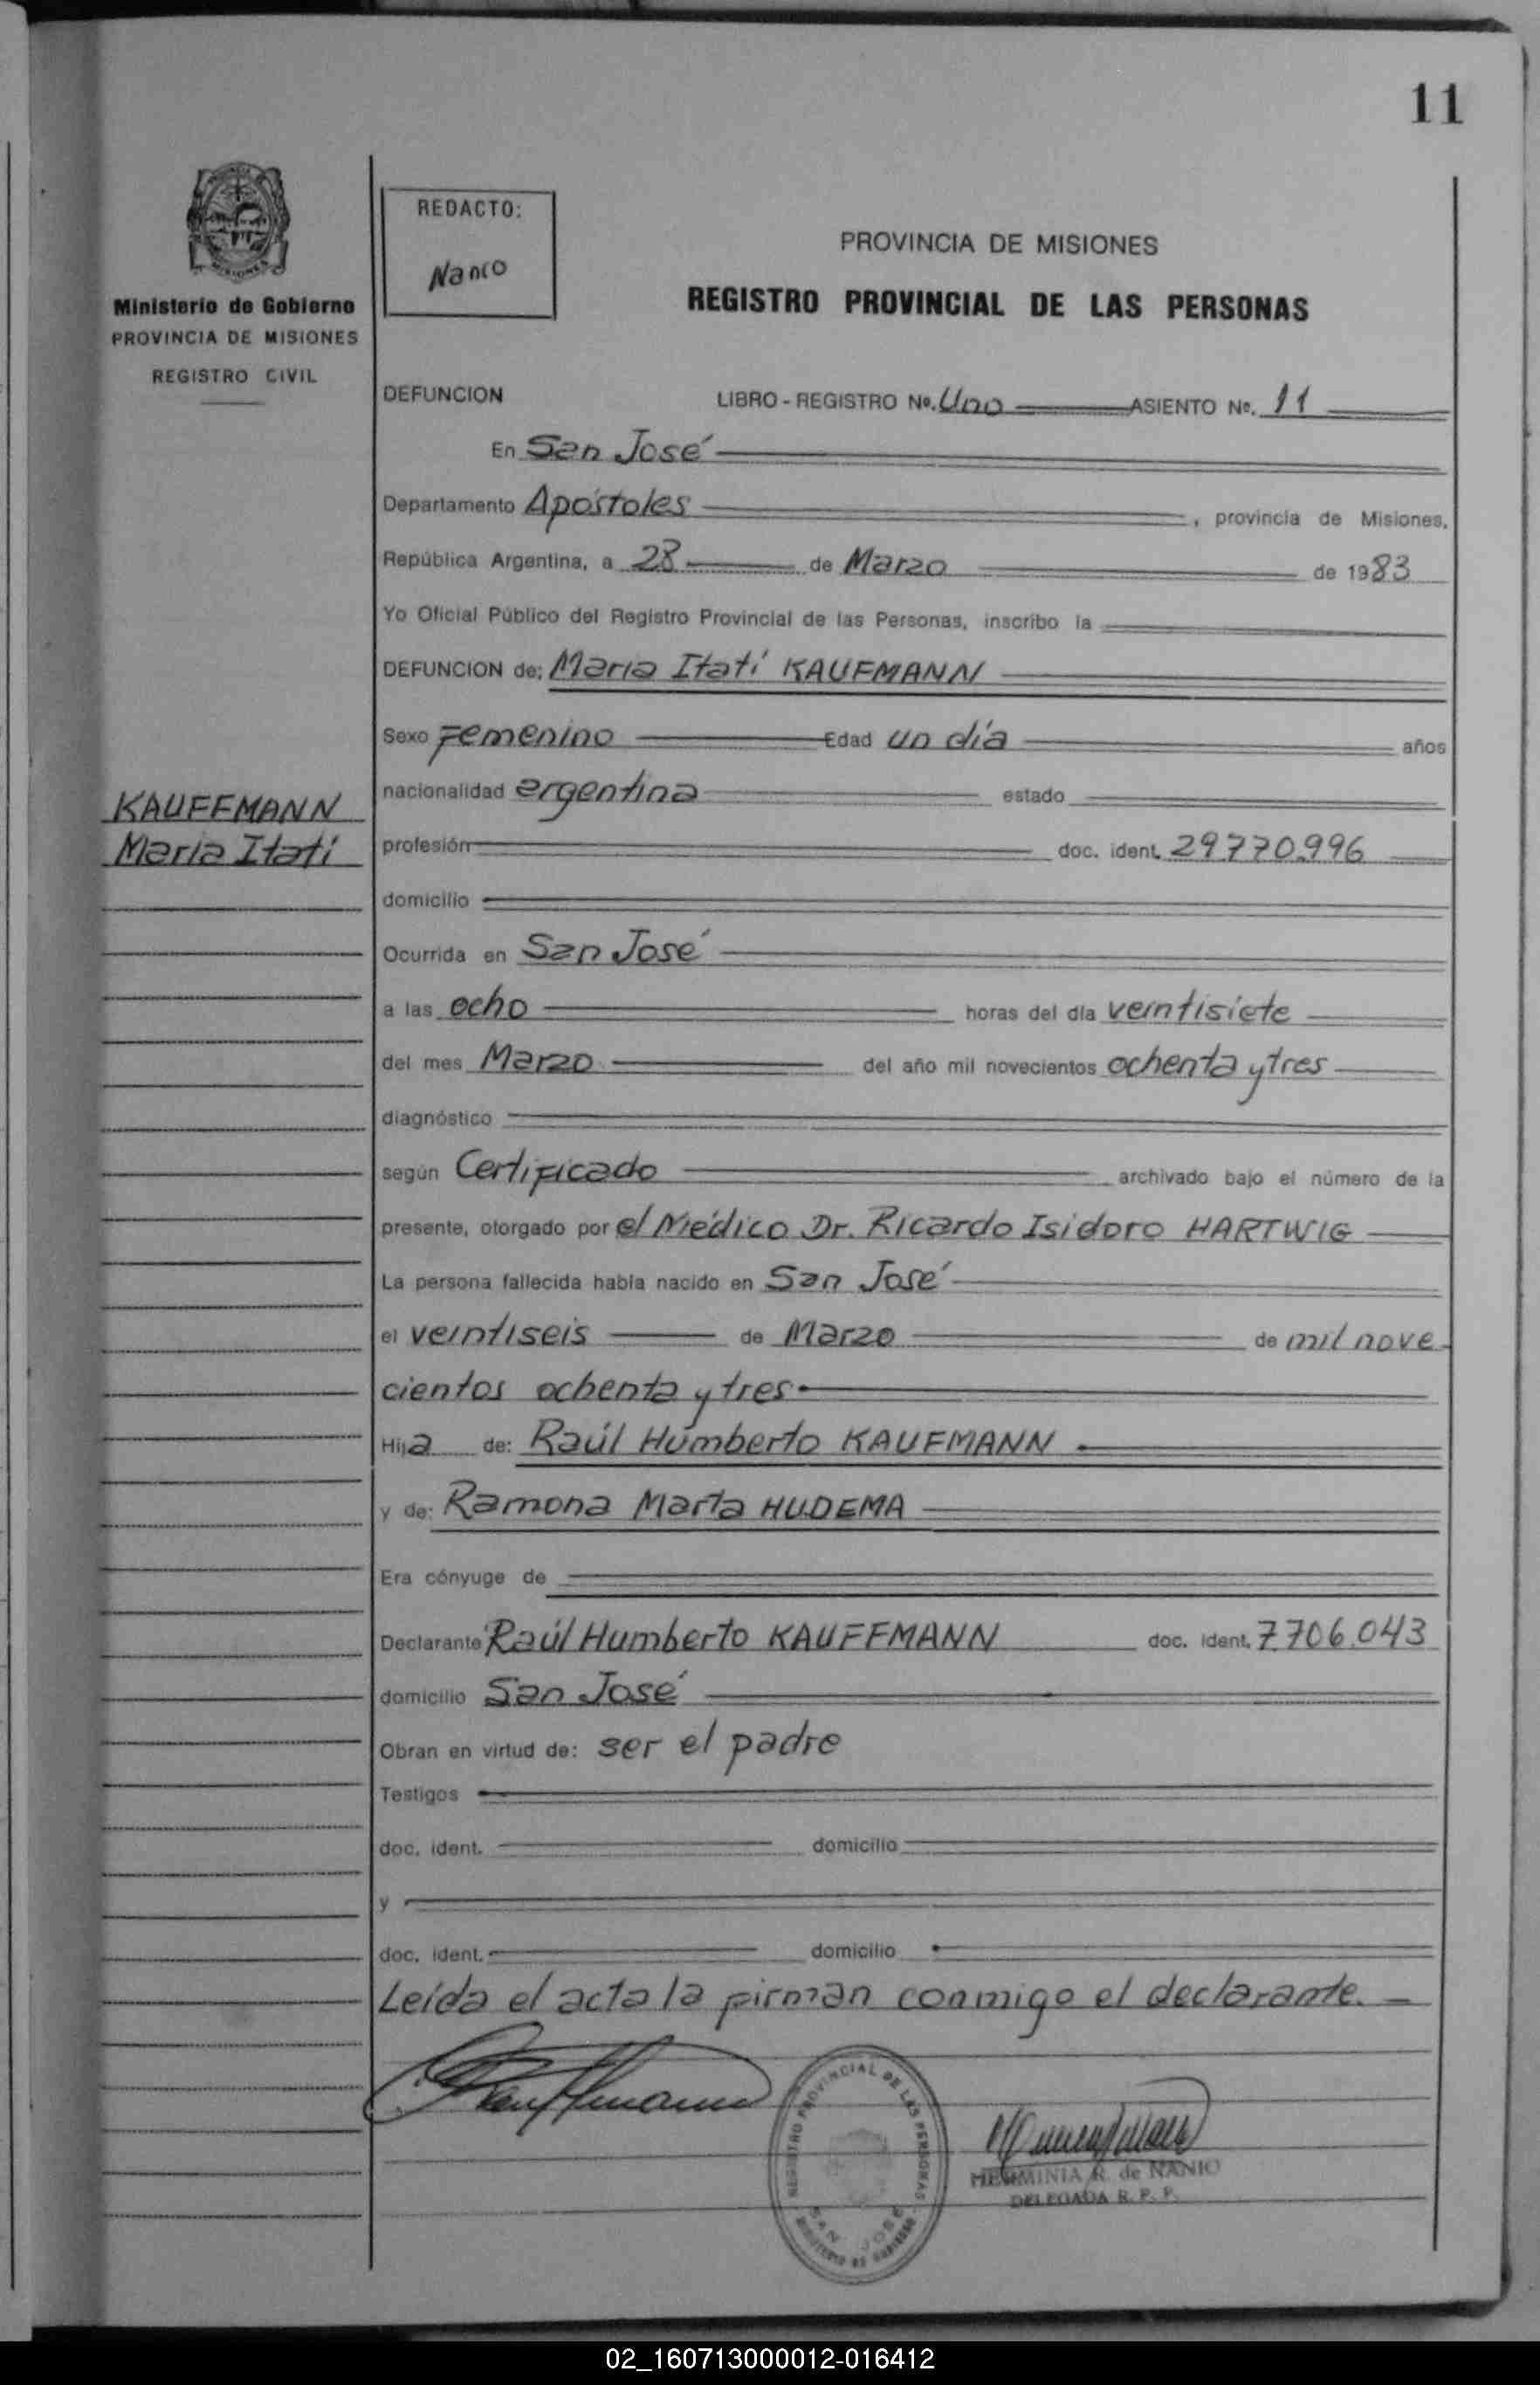 11
REDACTO:
Nanio
PROVINCIA DE MISIONES
REGISTRO PROVINCIAL DE LAS PERSONAS
MISIONES
Ministerio de Gobierno
PROVINCIA DE MISIONES
REGISTRO CIVIL
DEFUNCION LIBRO - REGISTRO No. Uno ASIENTO No. 11
En San José
Departamento Apóstoles, provincia de Misiones,
República Argentina, a 28 de Marzo de 1983
Yo Oficial Público del Registro Provincial de las Personas, inscribo la
DEFUNCION de: María Itatí KAUFMANN
Sexo Femenino Edad un día años
nacionalidad argentina estado
KAUFFMANN
María Itatí
profesión doc. ident. 29770.996
domicilio
Ocurrida en San José
a las ocho horas del día veintisiete
del mes Marzo del año mil novecientos ochenta y tres
diagnóstico
según Certificado archivado bajo el número de la
presente, otorgado por el Médico Dr. Ricardo Isidoro HARTWIG
La persona fallecida había nacido en San José
el veintiseis de Marzo de mil nove
cientos ochenta y tres.
Hija de: Raúl Humberto KAUFMANN
y de: Ramona Marta HUDEMA
Era cónyuge de
Declarante Raúl Humberto KAUFFMANN doc. ident. 7.706.043
domicilio San José
Obran en virtud de: ser el padre
Testigos
doc. ident. domicilio
y
doc. ident. domicilio
Leída el acta la firman conmigo el declarante. —
Kauffmann
REGISTRO PROVINCIAL DE LAS PERSONAS
SAN JOSE
MINISTERIO DE GOBIERNO
HERMINIA R. de NANIO
DELEGADA R. P. P.
02_160713000012-016412